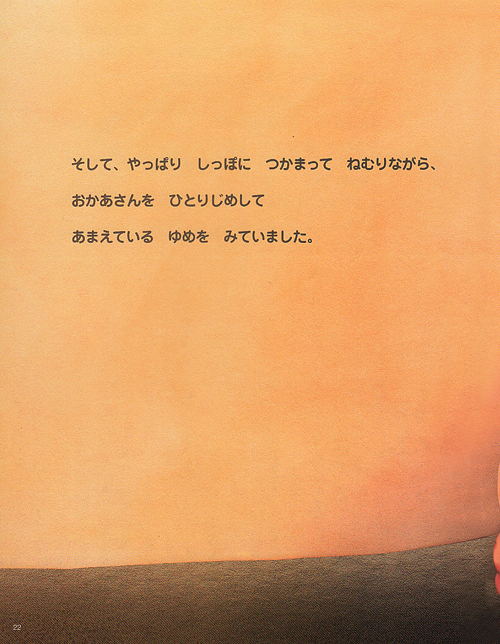 そして、やっぱり　しっぽに　つかまって　ねむりながら、
おかあさんを　ひとりじめして
あまえている　ゆめを　みていました。
22